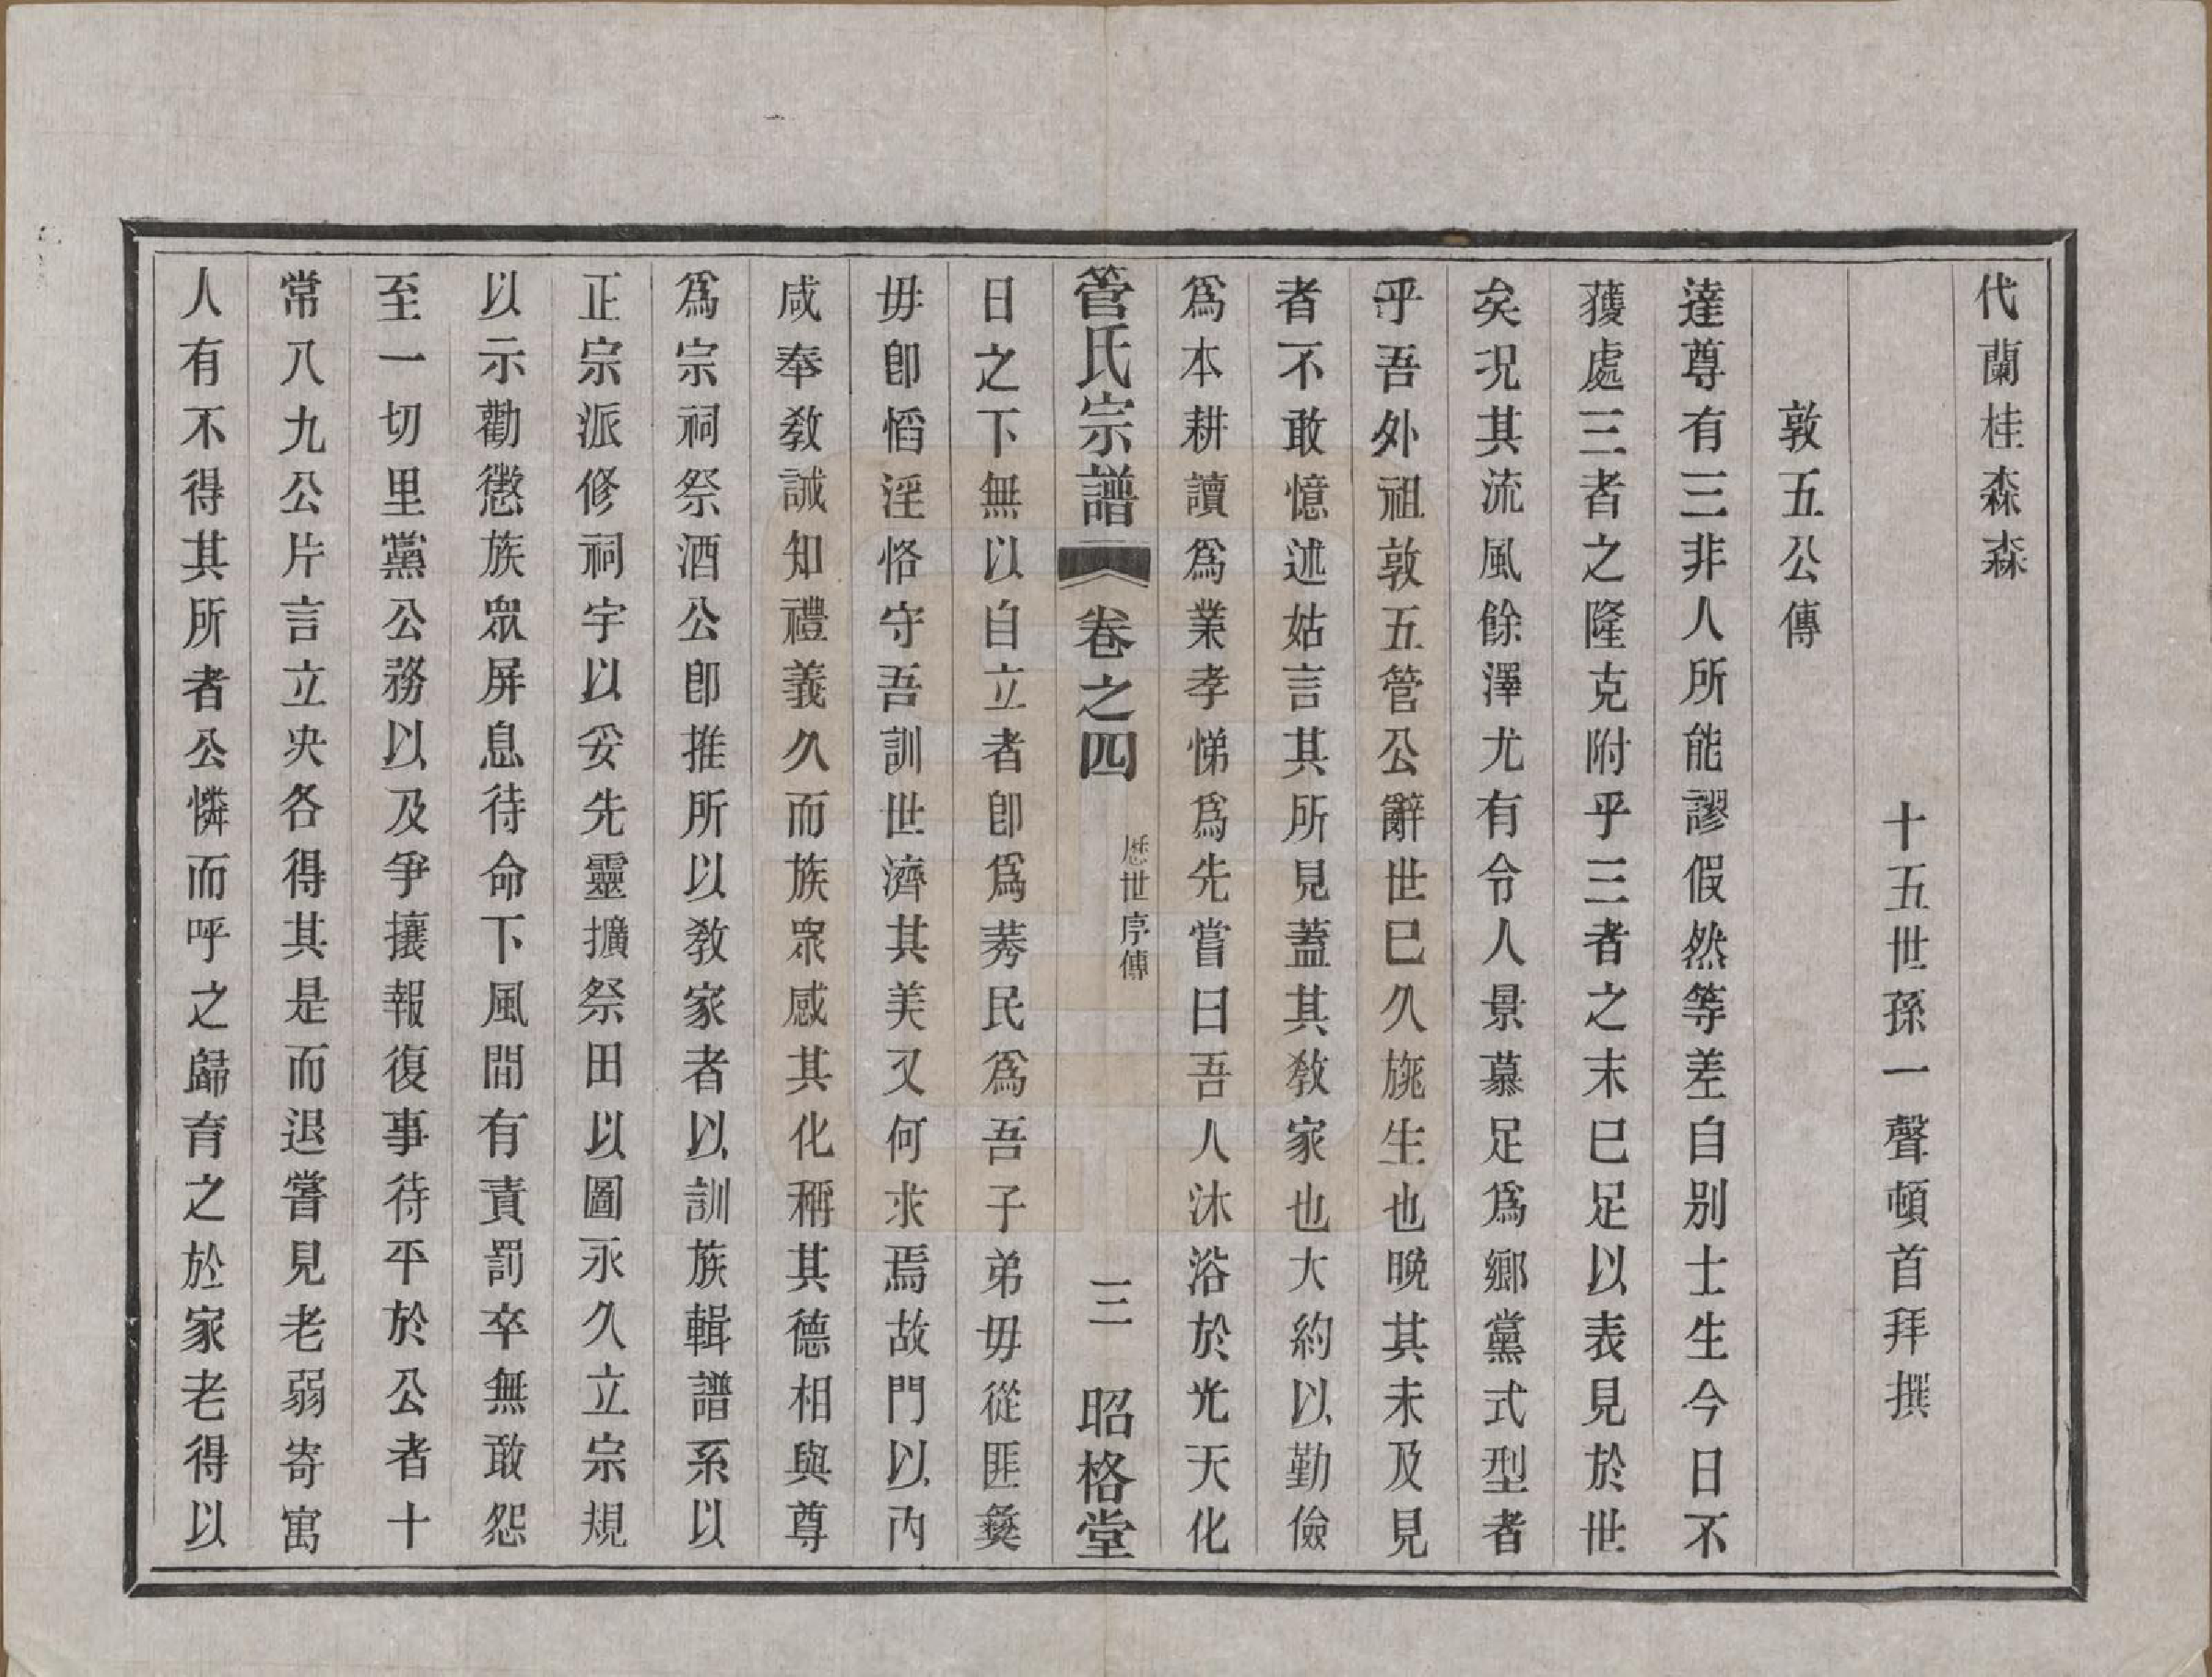 代蘭桂森森
十五世孫一聲頓首拜撰
敦五公傳
達尊有三非人所能謬假然等差自别士生今日不
獲處三者之隆克附乎三者之末巳足以表見於世
矣况其流風餘澤尤有令人景慕足爲鄉黨式型者
乎吾外祖敦五管公辭世巳久旐生也晚其未及見
者不敢憶述姑言其所見蓋其敎家也大約以勤儉
爲本耕讀爲業孝悌爲先嘗曰吾人沐浴於光天化
管氏宗譜 卷之四 歴世序傳 三 昭格堂
日之下無以自立者卽爲莠民爲吾子弟毋從匪彝
毋卽慆淫恪守吾訓世濟其美又何求焉故門以內
咸奉敎誡知禮義久而族衆感其化稱其德相與尊
爲宗祠祭酒公卽推所以敎家者以訓族輯譜系以
正宗派修祠宇以妥先靈擴祭田以圖永久立宗規
以示勸懲族眾屏息待命下風間有責罰卒無敢怨
至一切里黨公務以及爭攘報復事待平於公者十
常八九公片言立决各得其是而退嘗見老弱寄寓
人有不得其所者公憐而呼之歸育之於家老得以